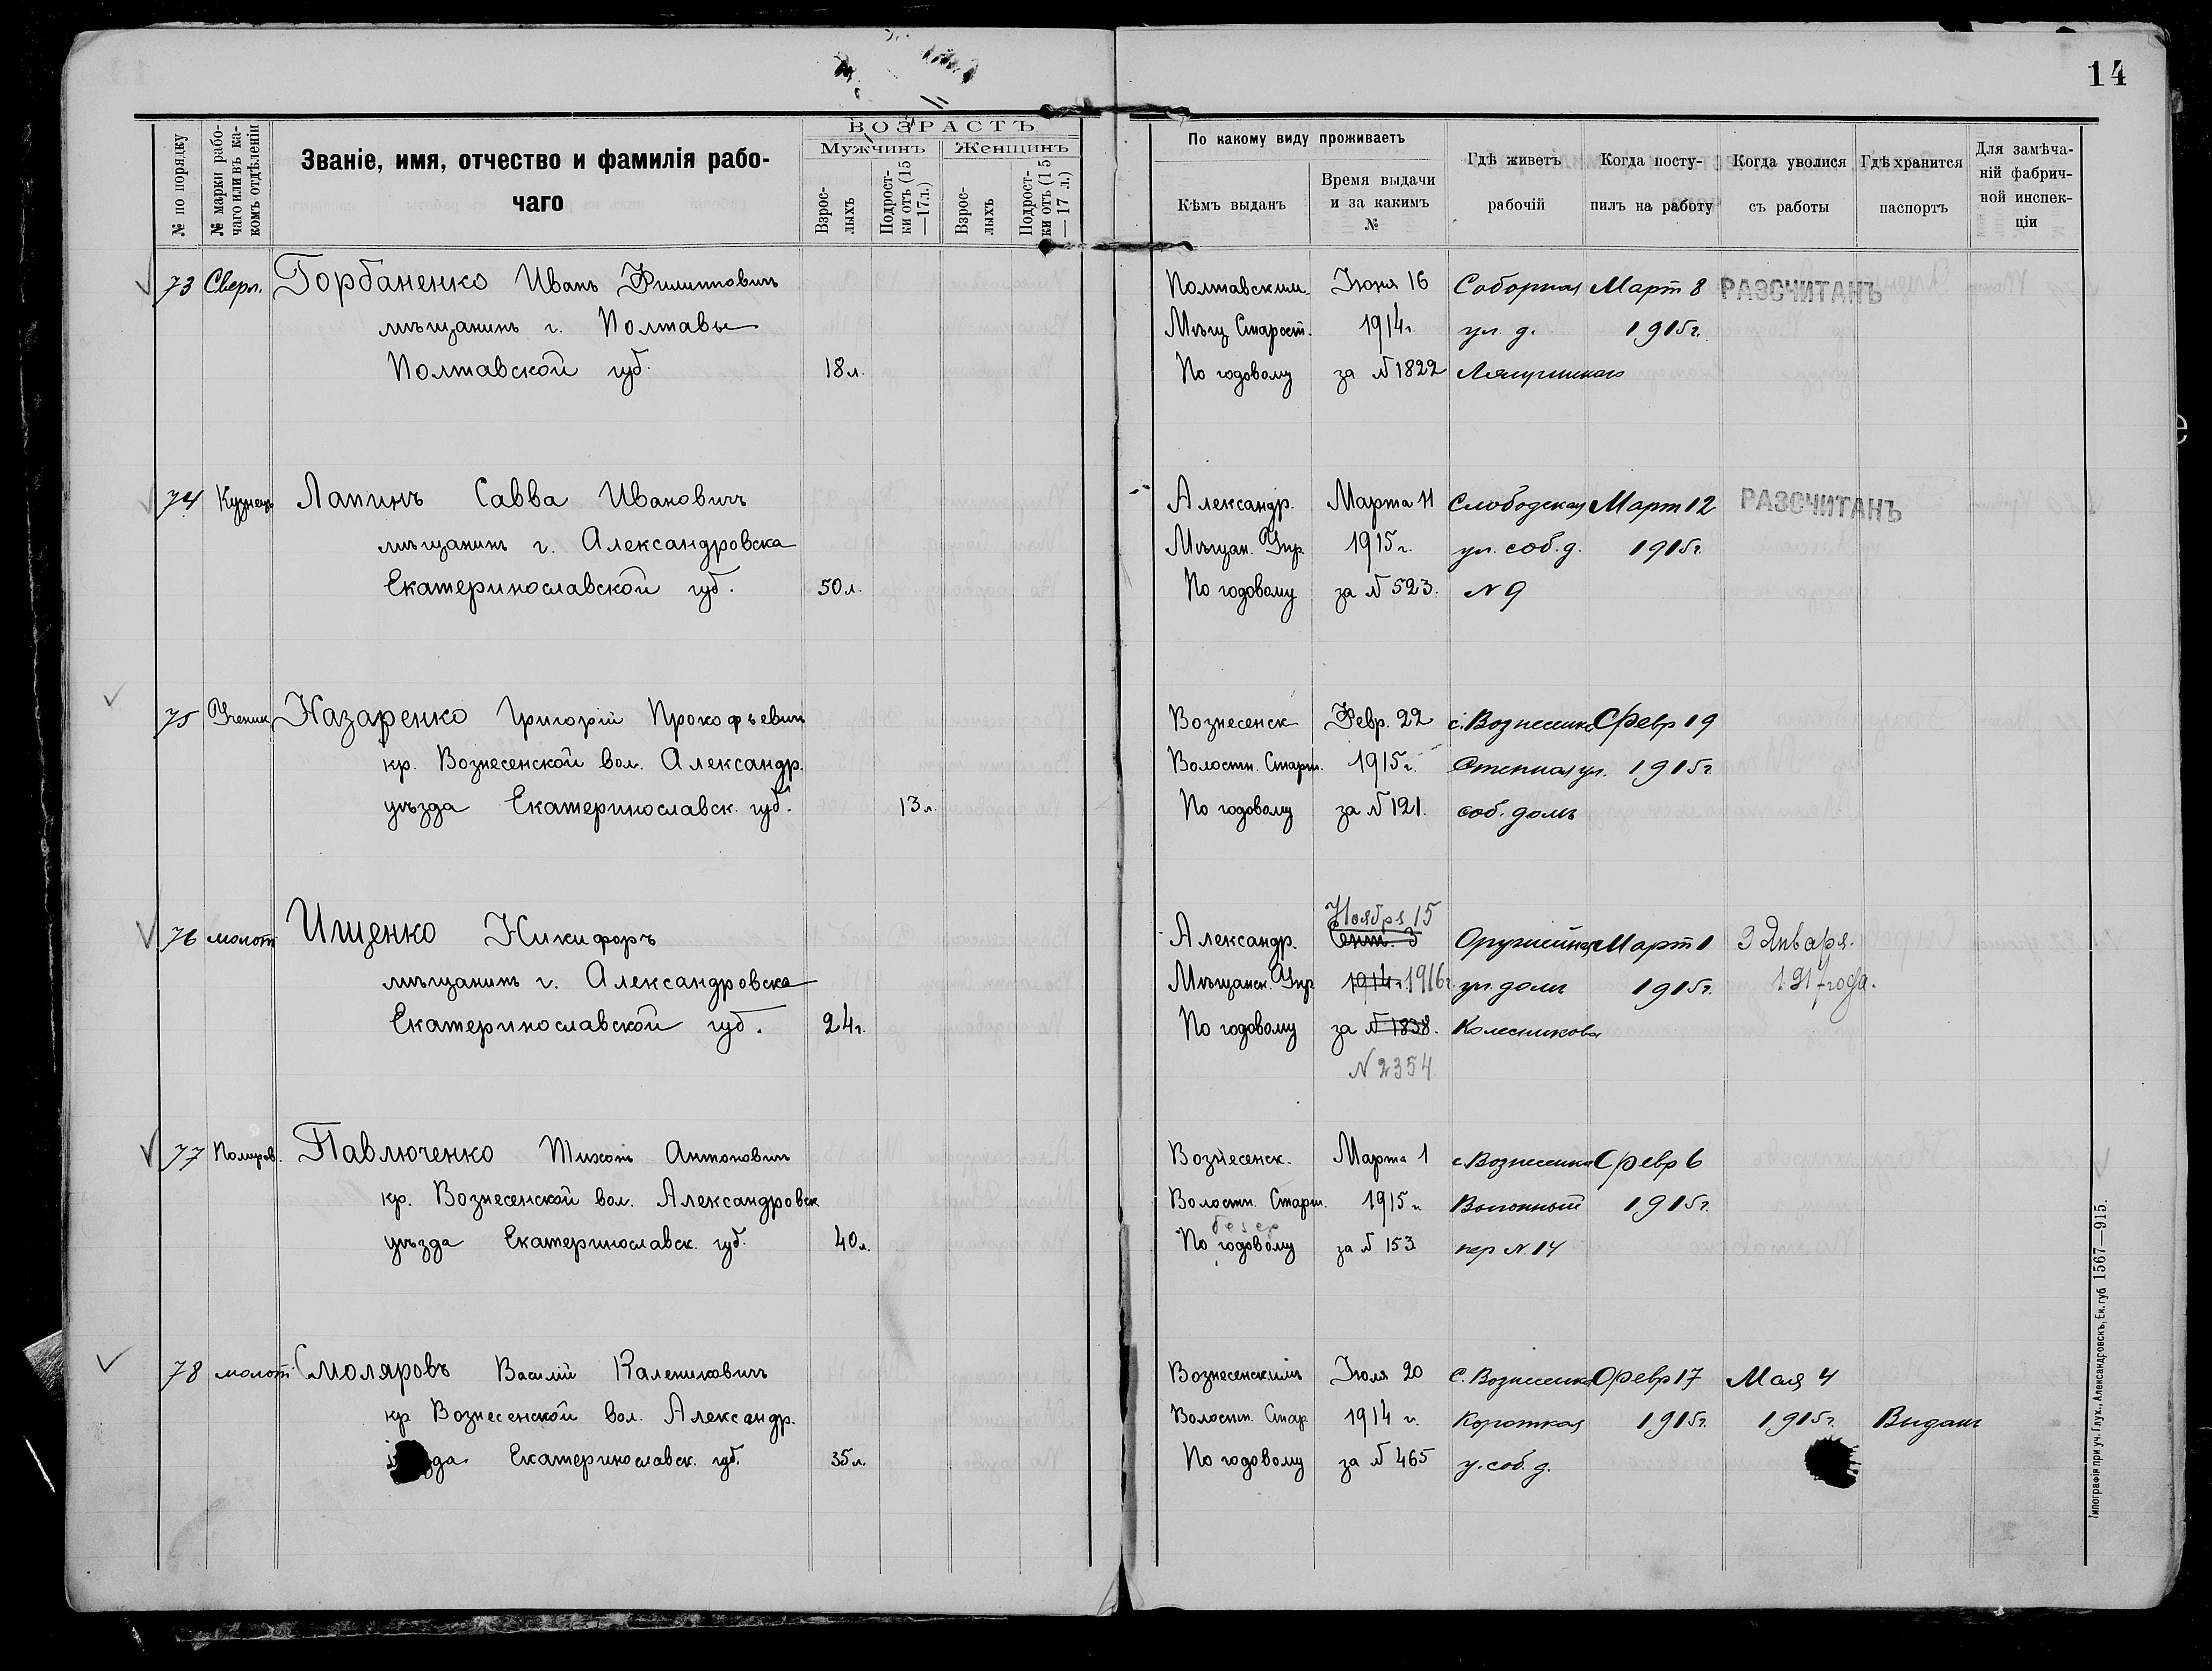 14
№ по порядку
№ марки рабо-
чаго или въ ка-
комъ отдѣленіи
Званіе, имя, отчество и фамилія рабо-
чаго
ВОЗРАСТЪ
Мужчинъ
Женщинъ
Взрос-
лыхъ
Подрост-
ки отъ (15
—17 л.)
Взрос-
лыхъ
Подрост-
ки отъ (15
—17 л.)
По какому виду проживаетъ
Кѣмъ выданъ
Время выдачи
и за какимъ
№
Гдѣ живетъ
рабочій
Когда посту-
пилъ на работу
Когда уволися
съ работы
Гдѣ хранится
паспортъ
Для замѣча-
ній фабрич-
ной инспек-
ціи
73 Сверл. Горбаненко Иванъ Филипповичъ Полтавским. Іюня 16 Соборная Март 8 РАЗСЧИТАНЪ
мѣщанинъ г. Полтавы Мѣщ. Старост. 1914г. ул. д. 1915г.
Полтавской губ. 18 л. По годовому за № 1822
74 Кузнецъ Лапинъ Савва Ивановичъ Александр. Марта 11 Слободская Март 12 РАЗСЧИТАНЪ
мѣщанинъ г. Александровска Мѣщан. Упр. 1915г. ул. соб. д. 1915г.
Екатеринославской губ. 50 л. По годовому за № 523. № 9
75 Ученик Назаренко Григорій Прокофьевич Вознесенск Февр. 22 с. Вознесенка Февр 19
кр. Вознесенской вол. Александр. Волостн. Старш. 1915г. Степная ул. 1915г.
уѣзда Екатеринославск. губ. 13 л. По годовому за № 121. соб. домъ
Ноября 15
76 молот Ищенко Никифоръ Александр. Сент. 3 Оружейная Март 1 3 Января.
мѣщанинъ г. Александровска Мѣщанск. Упр. 1914г. 1916г. ул. домъ 1915г. 1917 года.
Екатеринославской губ. 24 г. По годовому за № 1838. Колесникова
№ 2354
77 Полиров. Павлюченко Тихонъ Антонович Вознесенск. Марта 1 с. Вознесенка Февр 6
кр. Вознесенской вол. Александровск Волостн. Старш. 1915г. Выгонный 1915г.
уѣзда Екатеринославск. губ. 40 л. По годовому за № 153 пер № 14
78 молот Смоляровъ Василій Каленикович Вознесенскимъ Іюля 20 С. Вознесенка Февр 17 Мая 4
кр Вознесенской вол. Александр. Волостн. Стар. 1914 г. Короткая 1915г. 1915г. Выдан
уѣзда Екатеринославск. губ. 35 л. По годовому за № 465 у. соб. д.
Типографія при уч. Глух., Александровскъ, Ек. губ 1567—915.